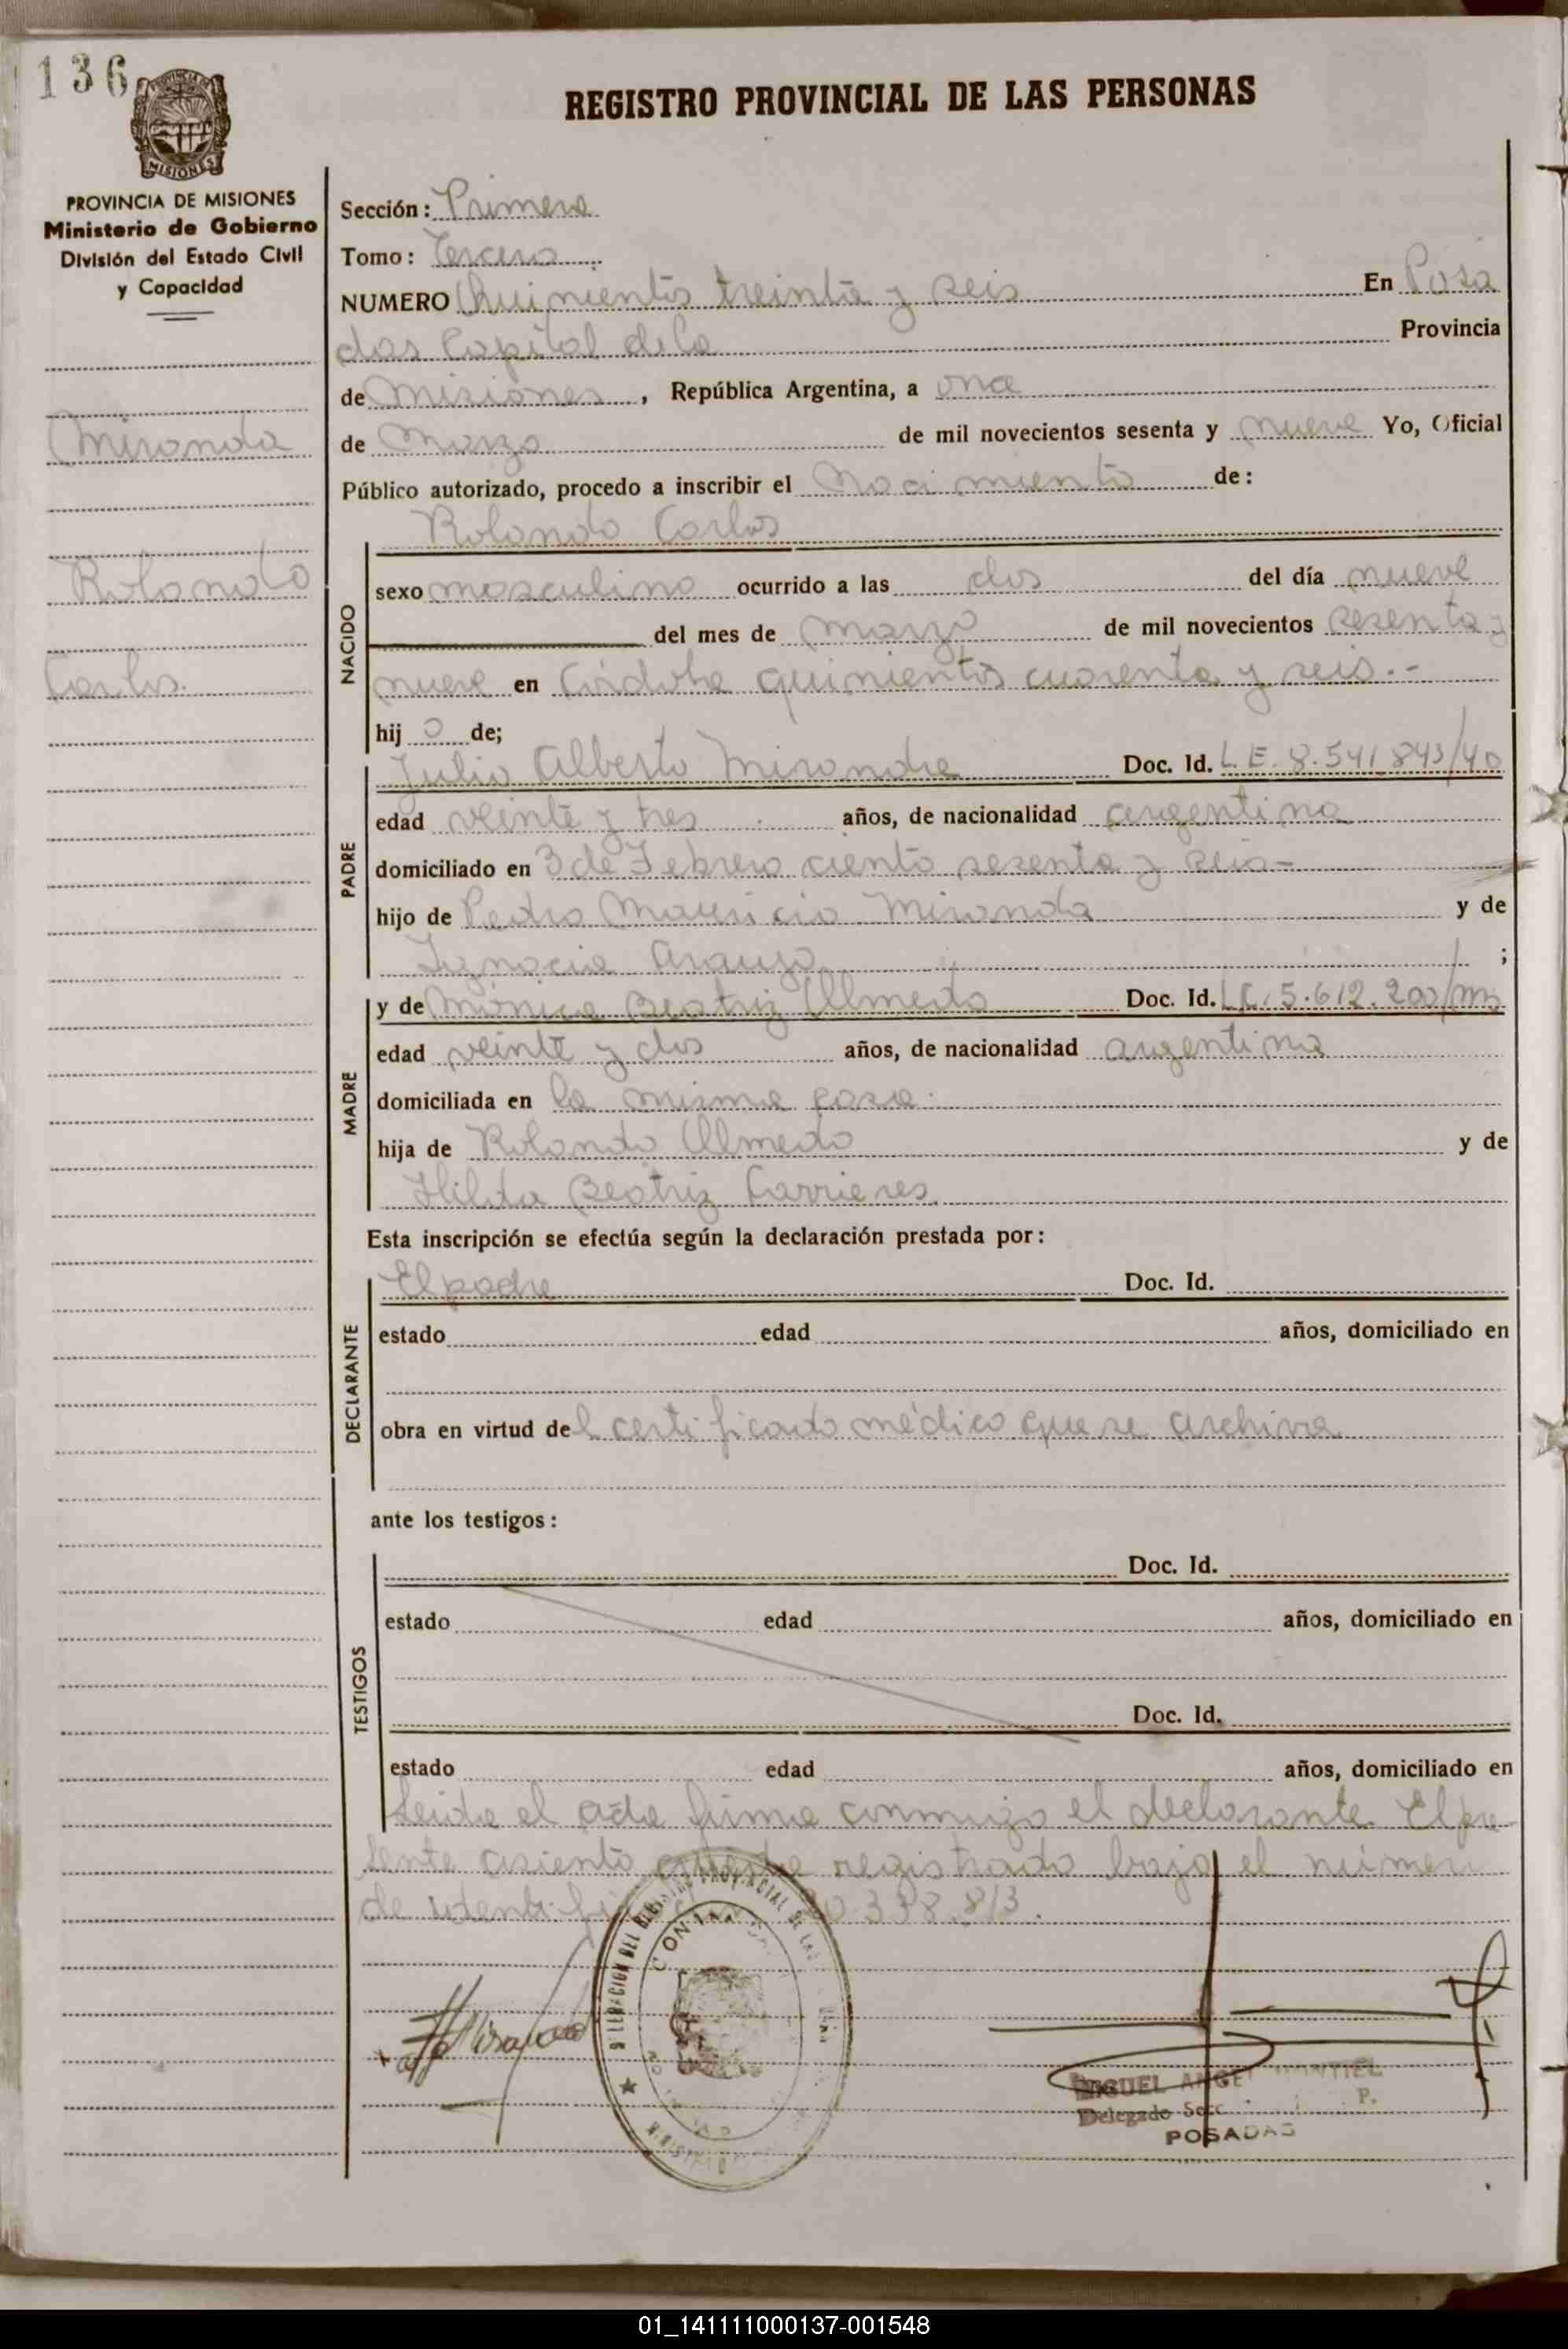 136
MISIONES
REGISTRO PROVINCIAL DE LAS PERSONAS
PROVINCIA DE MISIONES
Ministerio de Gobierno
División del Estado Civil
y Capacidad
Miranda
Rolando
Carlos.
Sección: Primera
Tomo: Tercero
NUMERO Quinientos treinta y seis En Posa
das Capital de la Provincia
de Misiones, República Argentina, a once
de Marzo de mil novecientos sesenta y nueve Yo, Oficial
Público autorizado, procedo a inscribir el Nacimiento de:
Rolando Carlos
NACIDO
sexo masculino ocurrido a las dos del día nueve
del mes de marzo de mil novecientos sesenta y
nueve en Córdoba quinientos cuarenta y seis.-
hij o de;
PADRE
Julio Alberto Miranda Doc. Id. L.E. 8.541.843/40
edad veinte y tres años, de nacionalidad argentina
domiciliado en 3 de Febrero ciento sesenta y seis-
hijo de Pedro Mauricio Miranda y de
Ignacia Araujo ;
MADRE
y de Mónica Beatriz Olmedo Doc. Id. L.C. 5.612.200/
edad veinte y dos años, de nacionalidad argentina
domiciliada en la misma casa.
hija de Rolando Olmedo y de
Hilda Beatriz Carrieres
Esta inscripción se efectúa según la declaración prestada por:
DECLARANTE
El padre Doc. Id.
estado edad años, domiciliado en
obra en virtud del certificado médico que se archiva
ante los testigos:
TESTIGOS
Doc. Id.
estado edad años, domiciliado en
Doc. Id.
estado edad años, domiciliado en
Leida el acta firma conmigo el declarante. El pre
sente asiento queda registrado bajo el número
de
MIGUEL ANGEL MONTIEL
Delegado Secc. P.
POSADAS
01_141111000137-001548